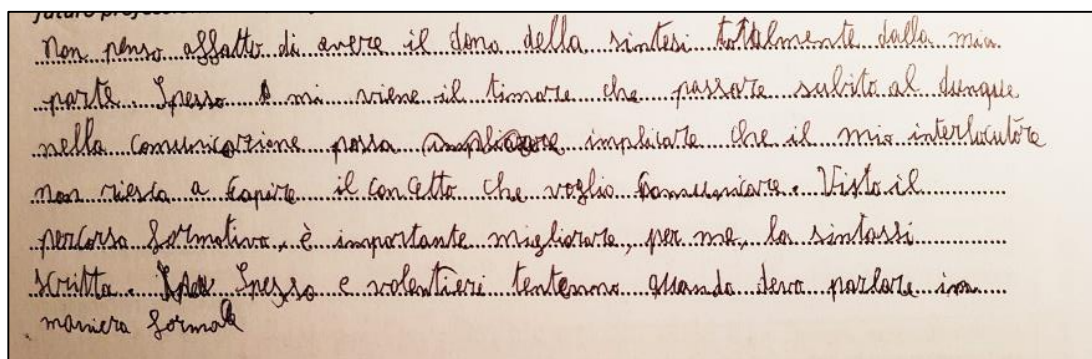 futuro profession
Non penso affatto di avere il dono della sintesi totalmente dalla mia
parte. Spesso mi viene il timore che passare subito al dunque
nella comunicazione possa implicare che il mio interlocutore
non riesca a capire il concetto che voglio comunicare. Visto il
percorso formativo, è importante migliorare, per me, la sintassi
scritta. Spesso e volentieri tentenno quando devo parlare in
maniera formale